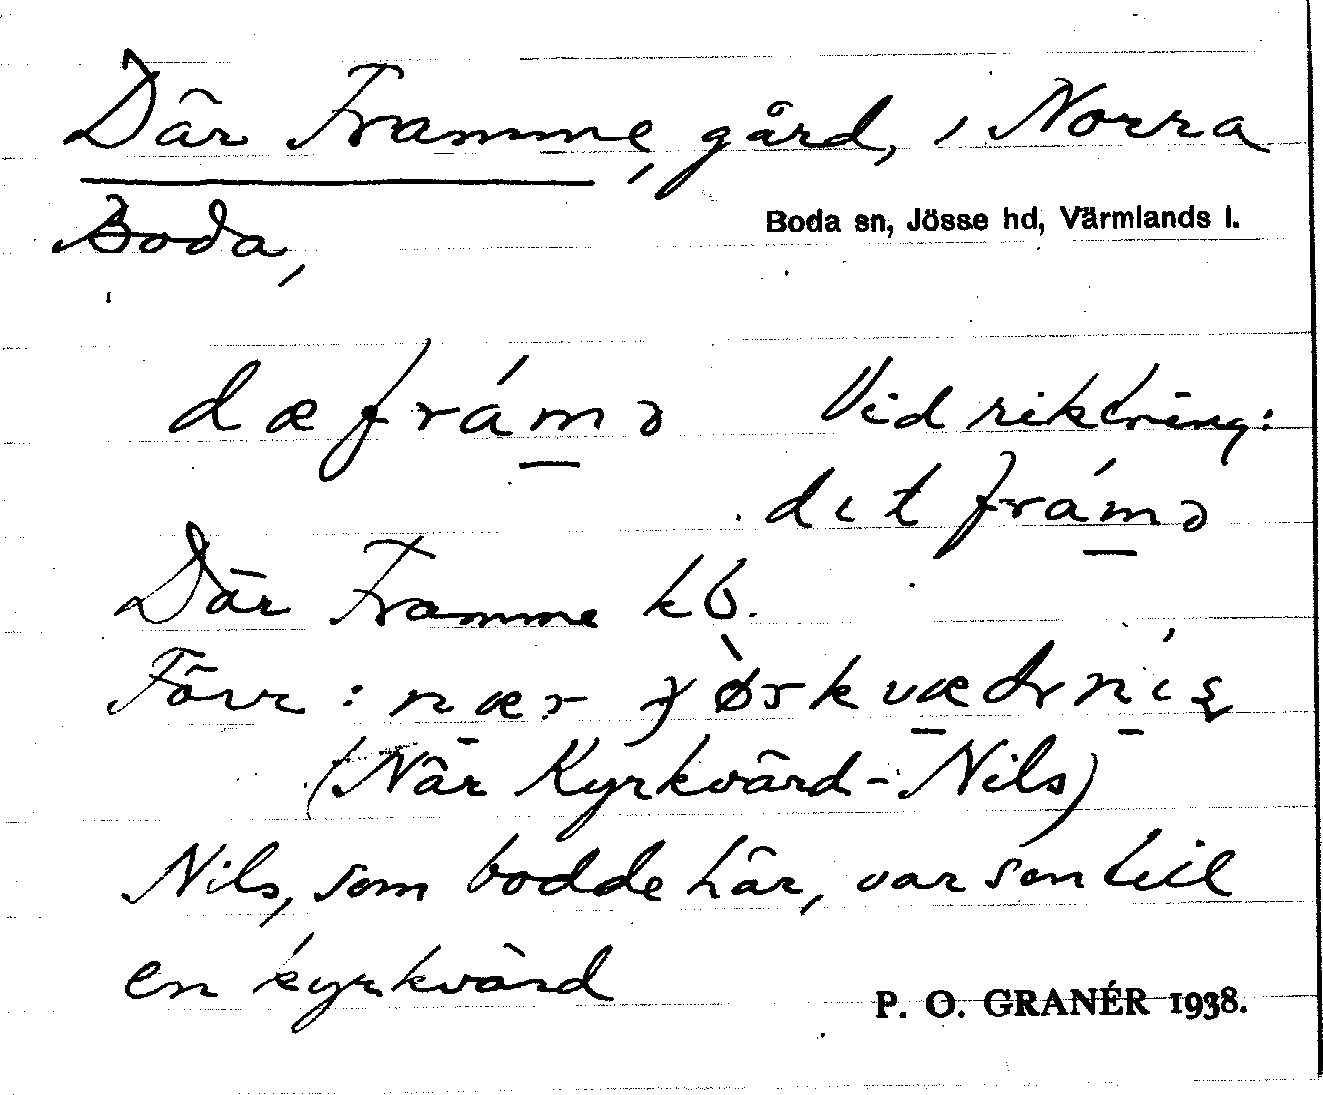 Där Framme, gård, i Norra
Boda,
Boda sn, Jösse hd, Värmlands l.
dæfrámə Vid riktning:
dıtfrámə
Där Framme kb.
Förr:
(När Kyrkvärd-Nils)
Nils, som bodde här, var son till
en kyrkvärd
P. O. GRANÉR 1938.